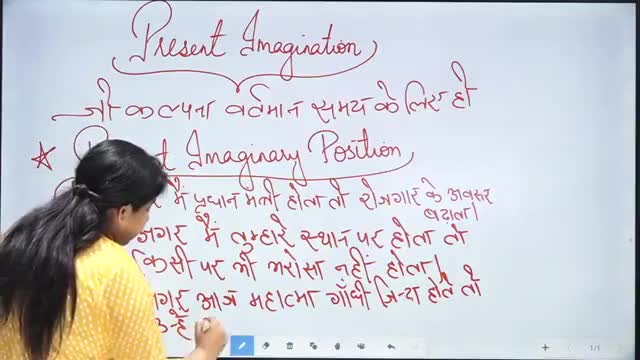 Present Imagination
जो कल्पना वर्तमान समय के लिए हो
Imaginary Position
में प्रधान मन्त्री होता तो रोजगार के अवसर
बढ़ाता।
अगर मैं तुम्हारे स्थान पर होता तो
किसी पर भी भरोसा नहीं होता।
अगर आज महात्मा गाँधी जिन्दा होते तो
उन्हें
1/1